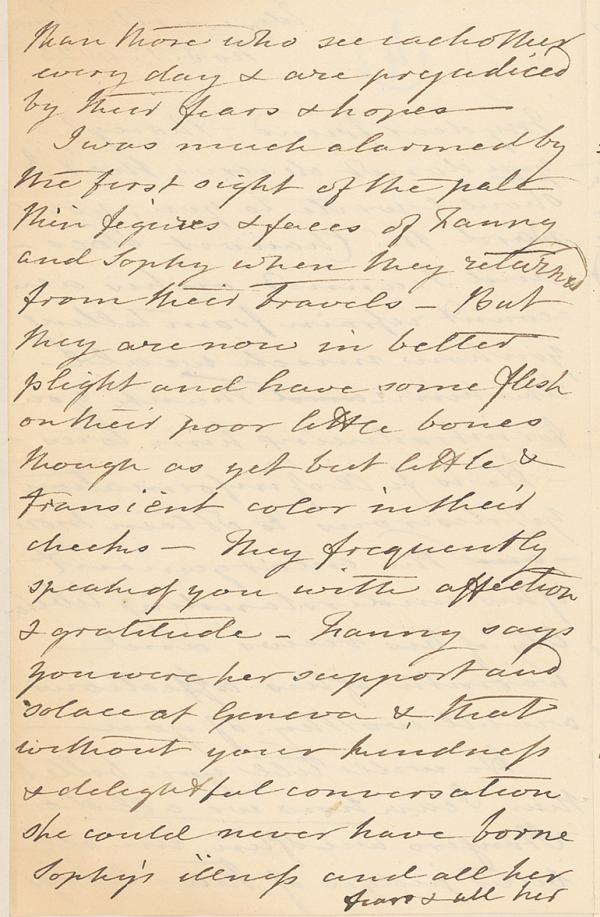 than those who see each other
every day & are prejudiced
by their fears & hopes —
I was much alarmed by
the first sight of the pale
thin figures & faces of Fanny
and Sophy when they returned
from their travels — But
they are now in better
plight and have some flesh
on their poor little bones
though as yet but little &
transient color in their
cheeks — They frequently
speak of you with affection
& gratitude — Fanny says
you were her support and
solace at Geneva & that
without your kindness
& delightful conversation
she could never have borne
Sophy's illness and all her
fears & all her